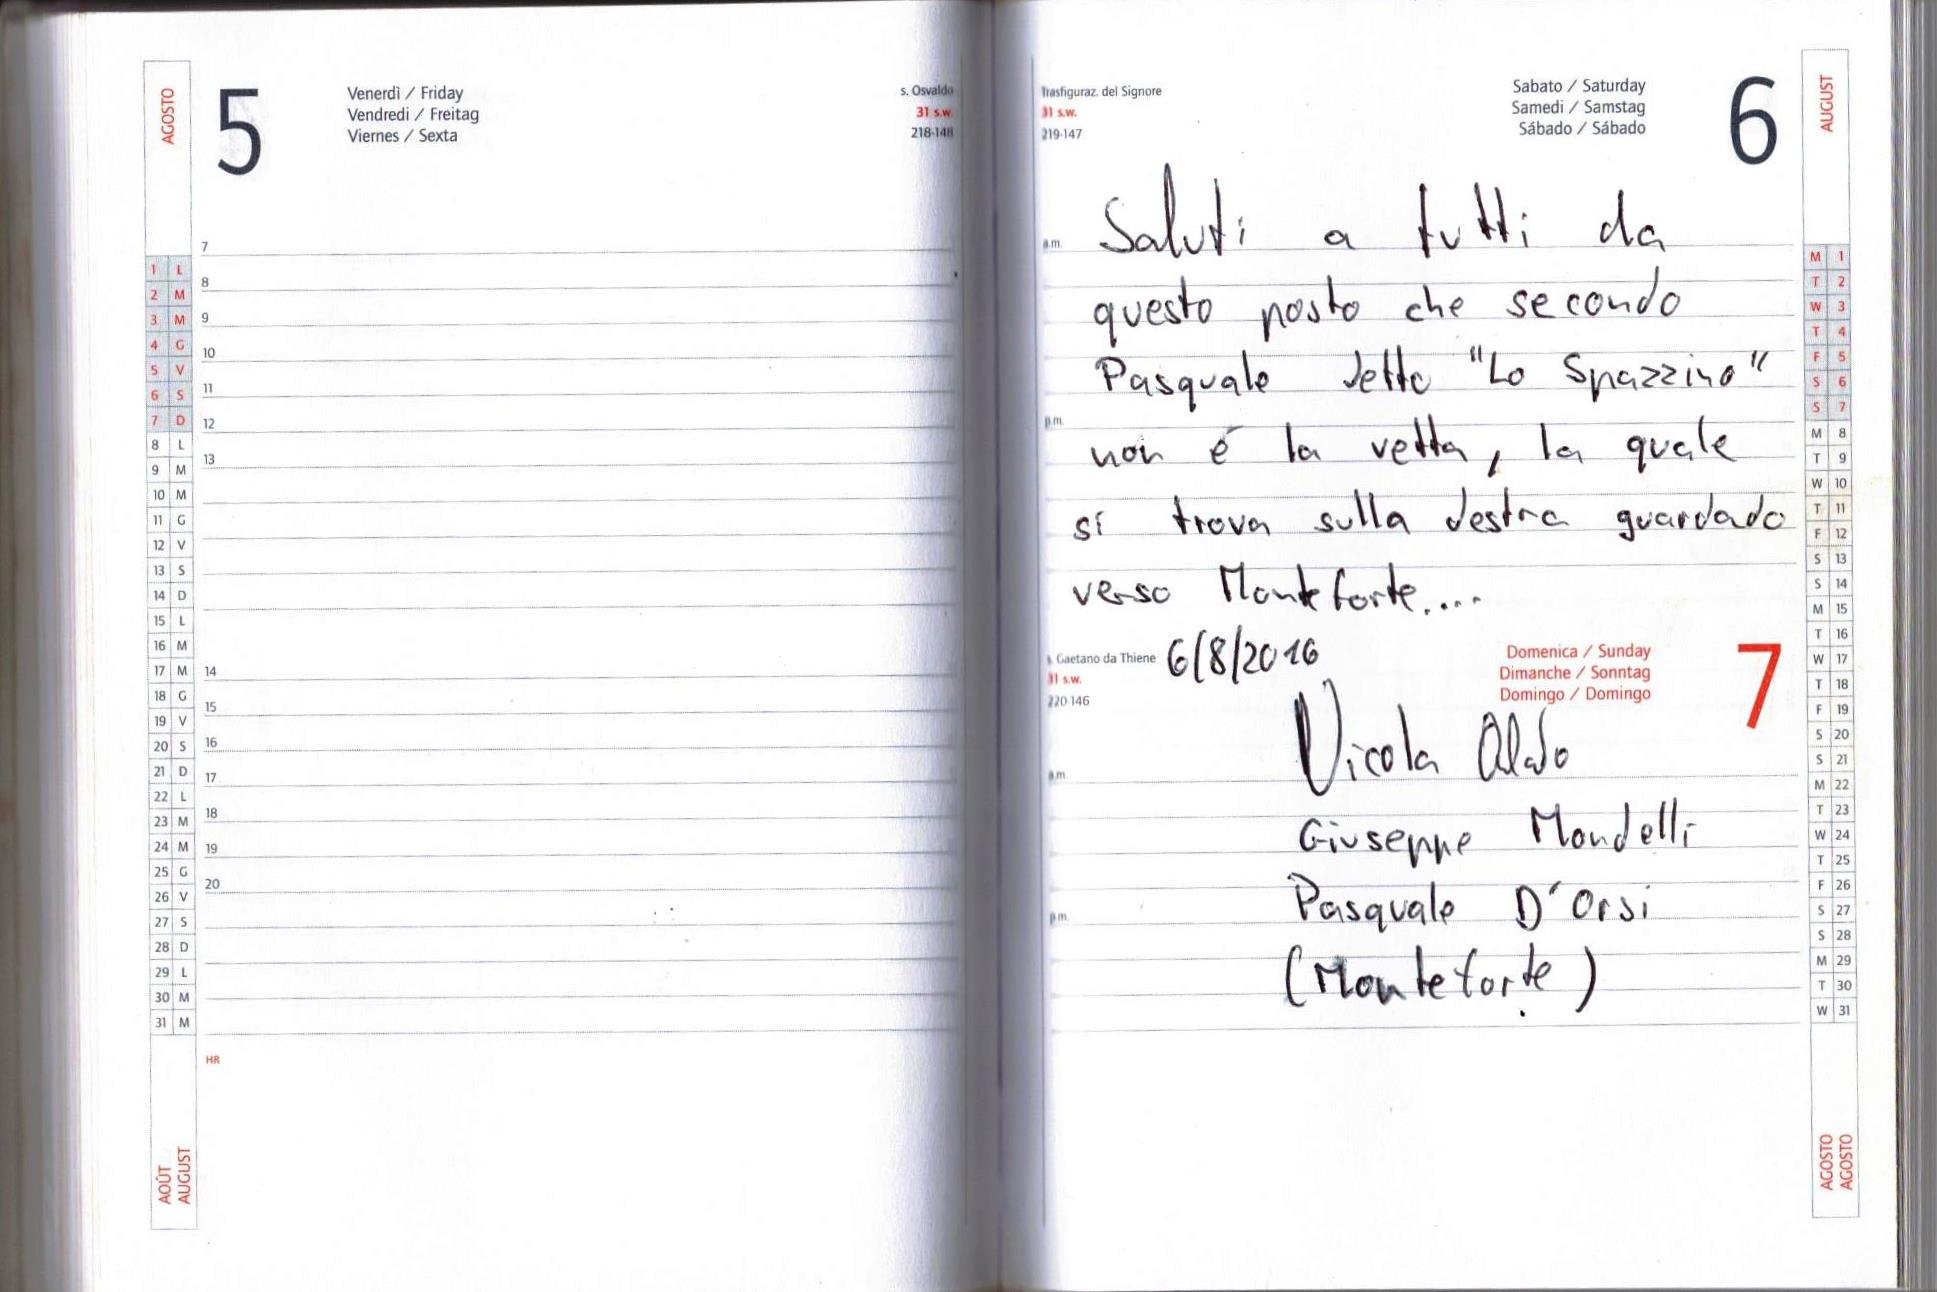 AGOSTO
5
Venerdì / Friday
Vendredi / Freitag
Viernes / Sexta
s. Osvaldo
31 s.w.
218-148
7
8
9
10
11
12
13
14
15
16
17
18
19
20
HR
1 L
2 M
3 M
4 G
5 V
6 S
7 D
8 L
9 M
10 M
11 G
12 V
13 S
14 D
15 L
16 M
17 M
18 G
19 V
20 S
21 D
22 L
23 M
24 M
25 G
26 V
27 S
28 D
29 L
30 M
31 M
AOÛT
AUGUST
Trasfiguraz. del Signore
31 s.w.
219-147
Sabato / Saturday
Samedi / Samstag
Sábado / Sábado
6
AUGUST
a.m.
Saluti a tutti da
questo posto che secondo
Pasquale detto "Lo Spazzino"
p.m.
non é la vetta, la quale
si trova sulla destra guardado
verso Monteforte....
s. Gaetano da Thiene
31 s.w.
220-146
6/8/2016
Domenica / Sunday
Dimanche / Sonntag
Domingo / Domingo
7
a.m.
Nicola Aldo
Giuseppe Mondelli
p.m.
Pasquale D'Orsi
(Monteforte)
M 1
T 2
W 3
T 4
F 5
S 6
S 7
M 8
T 9
W 10
T 11
F 12
S 13
S 14
M 15
T 16
W 17
T 18
F 19
S 20
S 21
M 22
T 23
W 24
T 25
F 26
S 27
S 28
M 29
T 30
W 31
AGOSTO
AGOSTO